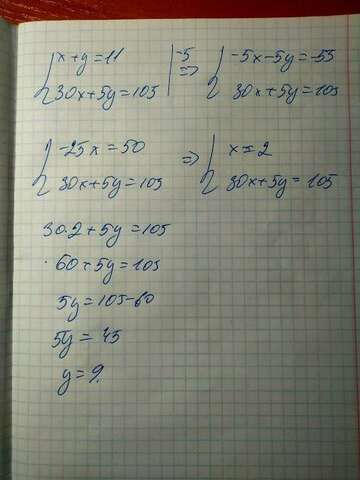 { x+y=11 |-5 => { -5x-5y=-55
{ 30x+5y=105 { 30x+5y=105
{ -25x=50 => { x=2
{ 30x+5y=105 { 30x+5y=105
30·2+5y=105
60+5y=105
5y=105-60
5y=45
y=9.